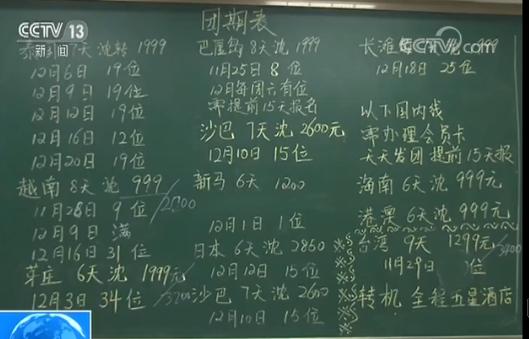 CCTV 13
新闻
CCTV.com
团期表
7天 沈 1999
12月6日 19位
12月9日 19位
12月12日 19位
12月16日 12位
12月20日 19位
越南 8天 沈 999
11月28日 9位
2000
12月9日 满
12月16日 31位
芽庄 6天 沈 1999元
12月3日 34位
3200
巴厘岛 8天 沈 1999
11月25日 8位
12月每周六有位
需提前15天报名
沙巴 7天 沈 2600元
12月10日 15位
新马 6天 1200
12月1日 1位
日本 6天 沈 2850
12月12日 15位
沙巴 7天 沈 2600
12月10日 15位
长滩
12月18日 25位
以下国内线
需办理会员卡
天天发团 提前15天报
海南 6天 沈 999元
港澳 6天 沈 999元
台湾 9天 1299元
3400
11月29日 位
转机 全程五星酒店